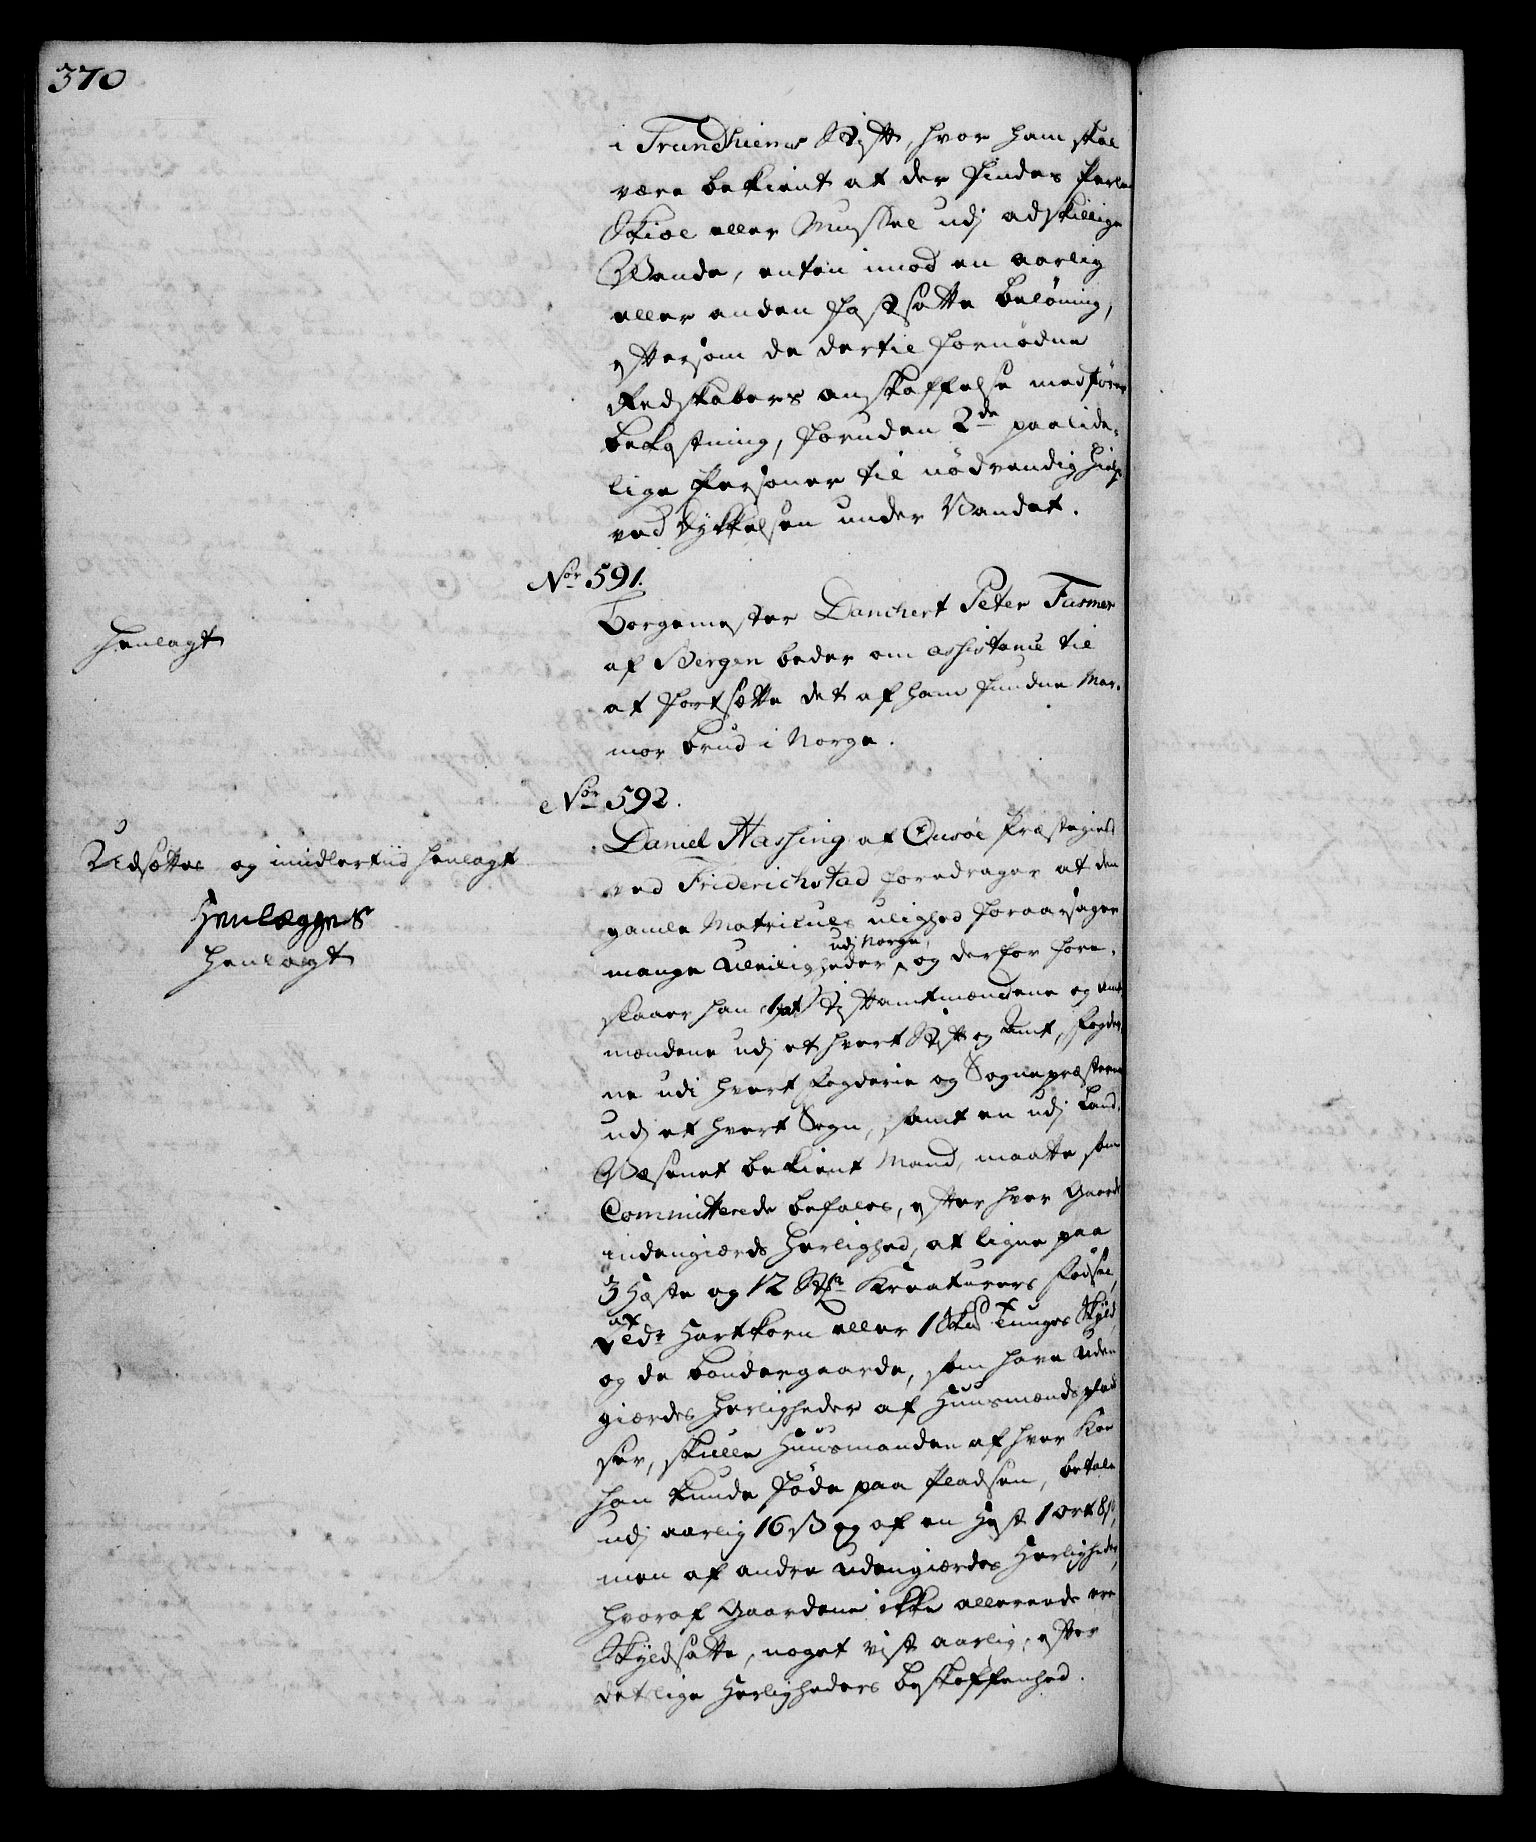 370
i Trundhiems Stift, hvor ham skal
være bekient at der findes Perle
Skiæl eller Mussel udj adskillige
Vande, enten imod en aarlig
eller anden fastsatte belöning,
eftersom de dertil fornødne
Redskabers anskaffelse medfører
bekostning, foruden 2de paalide-
lige Persohner til nödvendig Hielp
ved dykkelsen under Vandet.
Nor 591.
Henlagt
Borgemester Danchert Peter Fasmer
af Bergen beder om assistance til
at fortsætte det af ham fundne Mar-
mor brud i Norge.
Nor 592.
Udsættes og imidlertiid henlagt
Henlægges
Henlagt
Daniel Hassing af Onsøe Præstegield
ved Friderichstad foredrager at den
gamle Matriculs ulighed foraarsager
mange Uleiligheder udj Norge, og derfor fore-
slaaer han 1) at Stiftamtmændene og Amt-
mændene udj et hvert Stift og Amt, Fogder-
ne udi hvert Fogderie og Sognepræsterne
udj et hvert Sogn, samt en udj Land-
Væsenet bekient Mand, maatte som
Committerede befales, efter hver Gaards
indengiærds Herlighed, at ligne paa
3 Heste og 12 Stkr Kreaturers Födsel,
1 Tdr Hartkorn eller 1 Skpd Tunges Skyld,
og de bøndergaarde, som have uden
giærdes Herligheder af Huusmænds plad
ser, skulle Huusmanden af hver Koe
han kunde föde paa Pladsen, betale
udj aarlig 16 ß og af en Hest 1 ort 8 ß,
men af andre udengiærdes Herligheder,
hvoraf Gaardene ikke allereede ere
Skyldsatte, noget vist aarlig, efter
detslige Herligheders beskaffenhed.